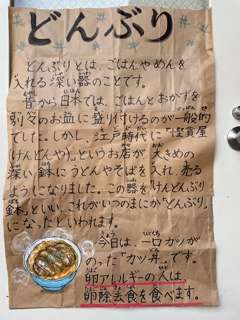 どんぶり
どんぶりとは、ごはんやめんを
入れる深い器のことです。
昔から日本では、ごはんとおかずを
別々のお皿に盛り付けるのが一般的
でした。しかし、江戸時代に「慳貪屋
(けんどんや)」というお店が、大きめの
深い鉢にうどんやそばを入れ、売る
ようになりました。この器を「けんどんぶり
鉢」といい、これがいつのまにか「どんぶり」
になったといわれます。
今日は、一口カツが
のった「カツ丼」です。
卵アレルギーの人は、
卵除去食を食べます。